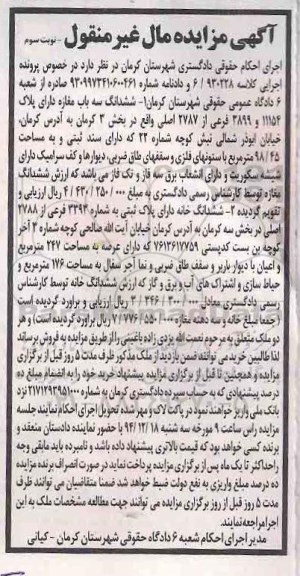 آگهی مزایده مال غیر منقول - نوبت سوم
اجرای احکام حقوقی دادگستری شهرستان کرمان در نظر دارد در خصوص پرونده
اجرایی کلاسه ۹۳۰۲۲۸ / ۶ و دادنامه شماره ۹۳۰۹۹۷۳۴۱۰۶۰۰۴۶۱ صادره از شعبه
۶ دادگاه عمومی حقوقی شهرستان کرمان۱- ششدانگ سه باب مغازه دارای پلاک
۱۱۱۵۴ و ۳۸۹۹ فرعی از ۲۷۸۷ اصلی واقع در بخش ۳ کرمان به آدرس کرمان،
خیابان ابوذر شمالی نبش کوچه شماره ۲۲ که دارای سند ثبتی و به مساحت
۹۸/۴۵ مترمربع با ستونهای فلزی و سقفهای طاق ضربی، دیوارها و کف سرامیک دارای
شیشه سکوریت و دارای انشعاب برق سه فاز و تک فاز می باشد که ارزش ششدانگ
مغازه توسط کارشناس رسمی دادگستری به مبلغ ۴/۴۳۰/۲۵۰/۰۰۰ ریال ارزیابی و
تقویم گردیده ۲- ششدانگ خانه دارای پلاک ثبتی به شماره ۳۳۹۳ فرعی از ۲۷۸۸
اصلی در بخش سه کرمان به آدرس کرمان خیابان آیت الله صالحی کوچه شماره ۳ آخر
کوچه بن بست کدپستی ۷۶۱۳۶۱۷۷۵۹ که دارای عرصه به مساحت ۲۴۷ مترمربع
و اعیان با دیوار باربر و سقف طاق ضربی و نما آجر سفال به مساحت ۱۷۶ مترمربع و
حیاط سازی و اشتراک های آب و برق و گاز که ارزش ششدانگ خانه توسط کارشناس
رسمی دادگستری معادل ۳/۳۴۶/۳۰۰/۰۰۰ ریال ارزیابی و برآورد گردیده است
(جمعا مبلغ خانه و سه دهنه مغازه ۷/۷۷۶/۵۵۰/۰۰۰ ریال برآورد گردیده است) و هر
دو ملک متعلق به مرحوم نعمت الله یزدی زاده باغینی را از طریق مزایده به فروش برساند
لذا طالبین خرید می توانند ضمن بازدید از ملک مذکور ظرف مدت ۵ روز قبل از برگزاری
مزایده و همچنین تا قبل از برگزاری مزایده پیشنهاد خرید خود را به انضمام مبلغ ده
درصد پیشنهادی که به حساب سپرده دادگستری کرمان به شماره نزد
بانک ملی واریز خواهند نمود در پاکت لاک و مهر شده تحویل اجرای احکام نمایند جلسه
مزایده راس ساعت ۹ مورخه سه شنبه ۹۴/۱۲/۱۸ با حضور نماینده دادستان منعقد و
برنده کسی خواهد بود که قیمت بالاتری پیشنهاد داده باشد و نامبرده باید مابقی وجه
را حداکثر تا یک ماه پس از برگزاری مزایده پرداخت نماید در صورت انصراف برنده مزایده
ده درصد مبلغ واریزی به نفع دولت ضبط خواهد شد ضمنا متقاضیان می توانند ظرف
مدت ۵ روز قبل از روز برگزاری مزایده می توانند جهت مطالعه مشخصات ملک به این
اجرا مراجعه نمایند.
مدیر اجرای احکام شعبه ۶ دادگاه حقوقی شهرستان کرمان - کیانی